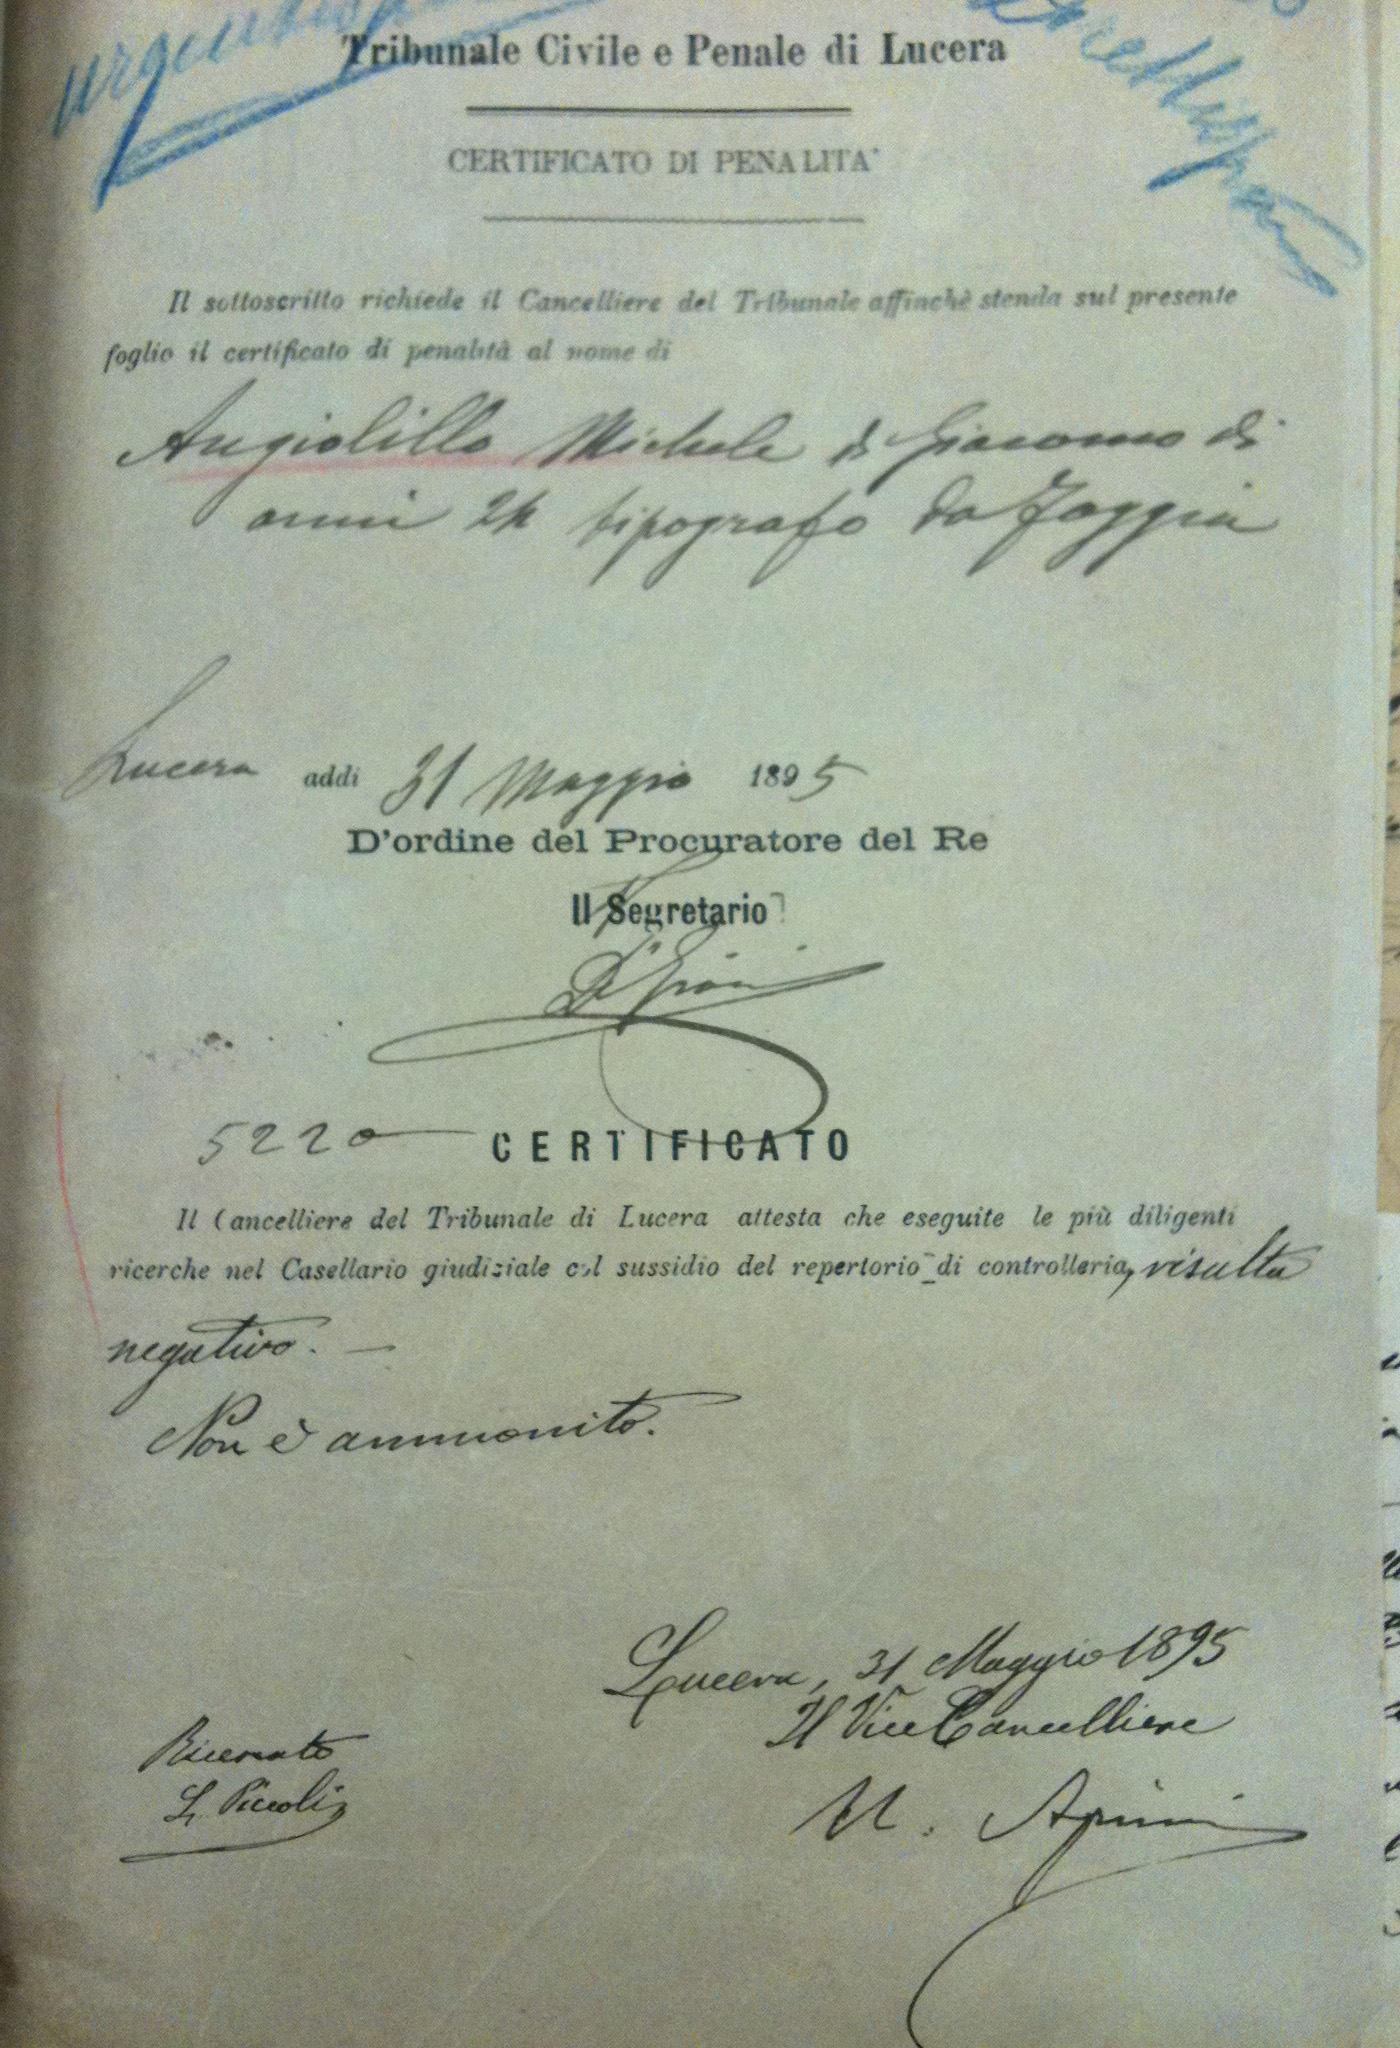 Tribunale Civile e Penale di Lucera
CERTIFICATO DI PENALITA'
Il sottoscritto richiede il Cancelliere del Tribunale affinchè stenda sul presente
foglio il certificato di penalità al nome di
Angiolillo Michele di Giacomo di
anni 24 tipografo da Foggia
Lucera addi 31 Maggio 1895
D'ordine del Procuratore del Re
Il Segretario
5220 CERTIFICATO
Il Cancelliere del Tribunale di Lucera attesta che eseguite le più diligenti
ricerche nel Casellario giudiziale col sussidio del repertorio di controlleria, risulta
negativo. —
Non è ammonito.
Lucera, 31 Maggio 1895
Il Vice Cancelliere
L. Piccoli